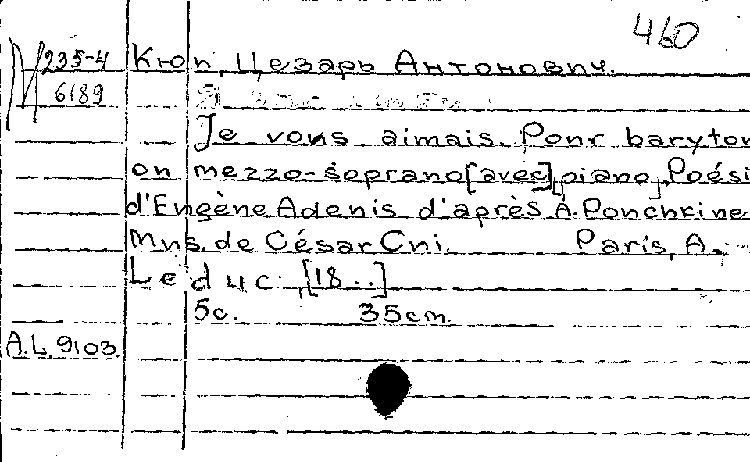 460
235-4 Кюи, Цезарь Антонович.
6189
Je vous aimais. Pour baryton
ou mezzo-soprano [avec] piano. Poési
d'Eugène Adenis d'après A. Pouchkine
Mus. de César Cui. Paris, A.
Leduc, [18..]
5c. 35cm.
A.L.9103.